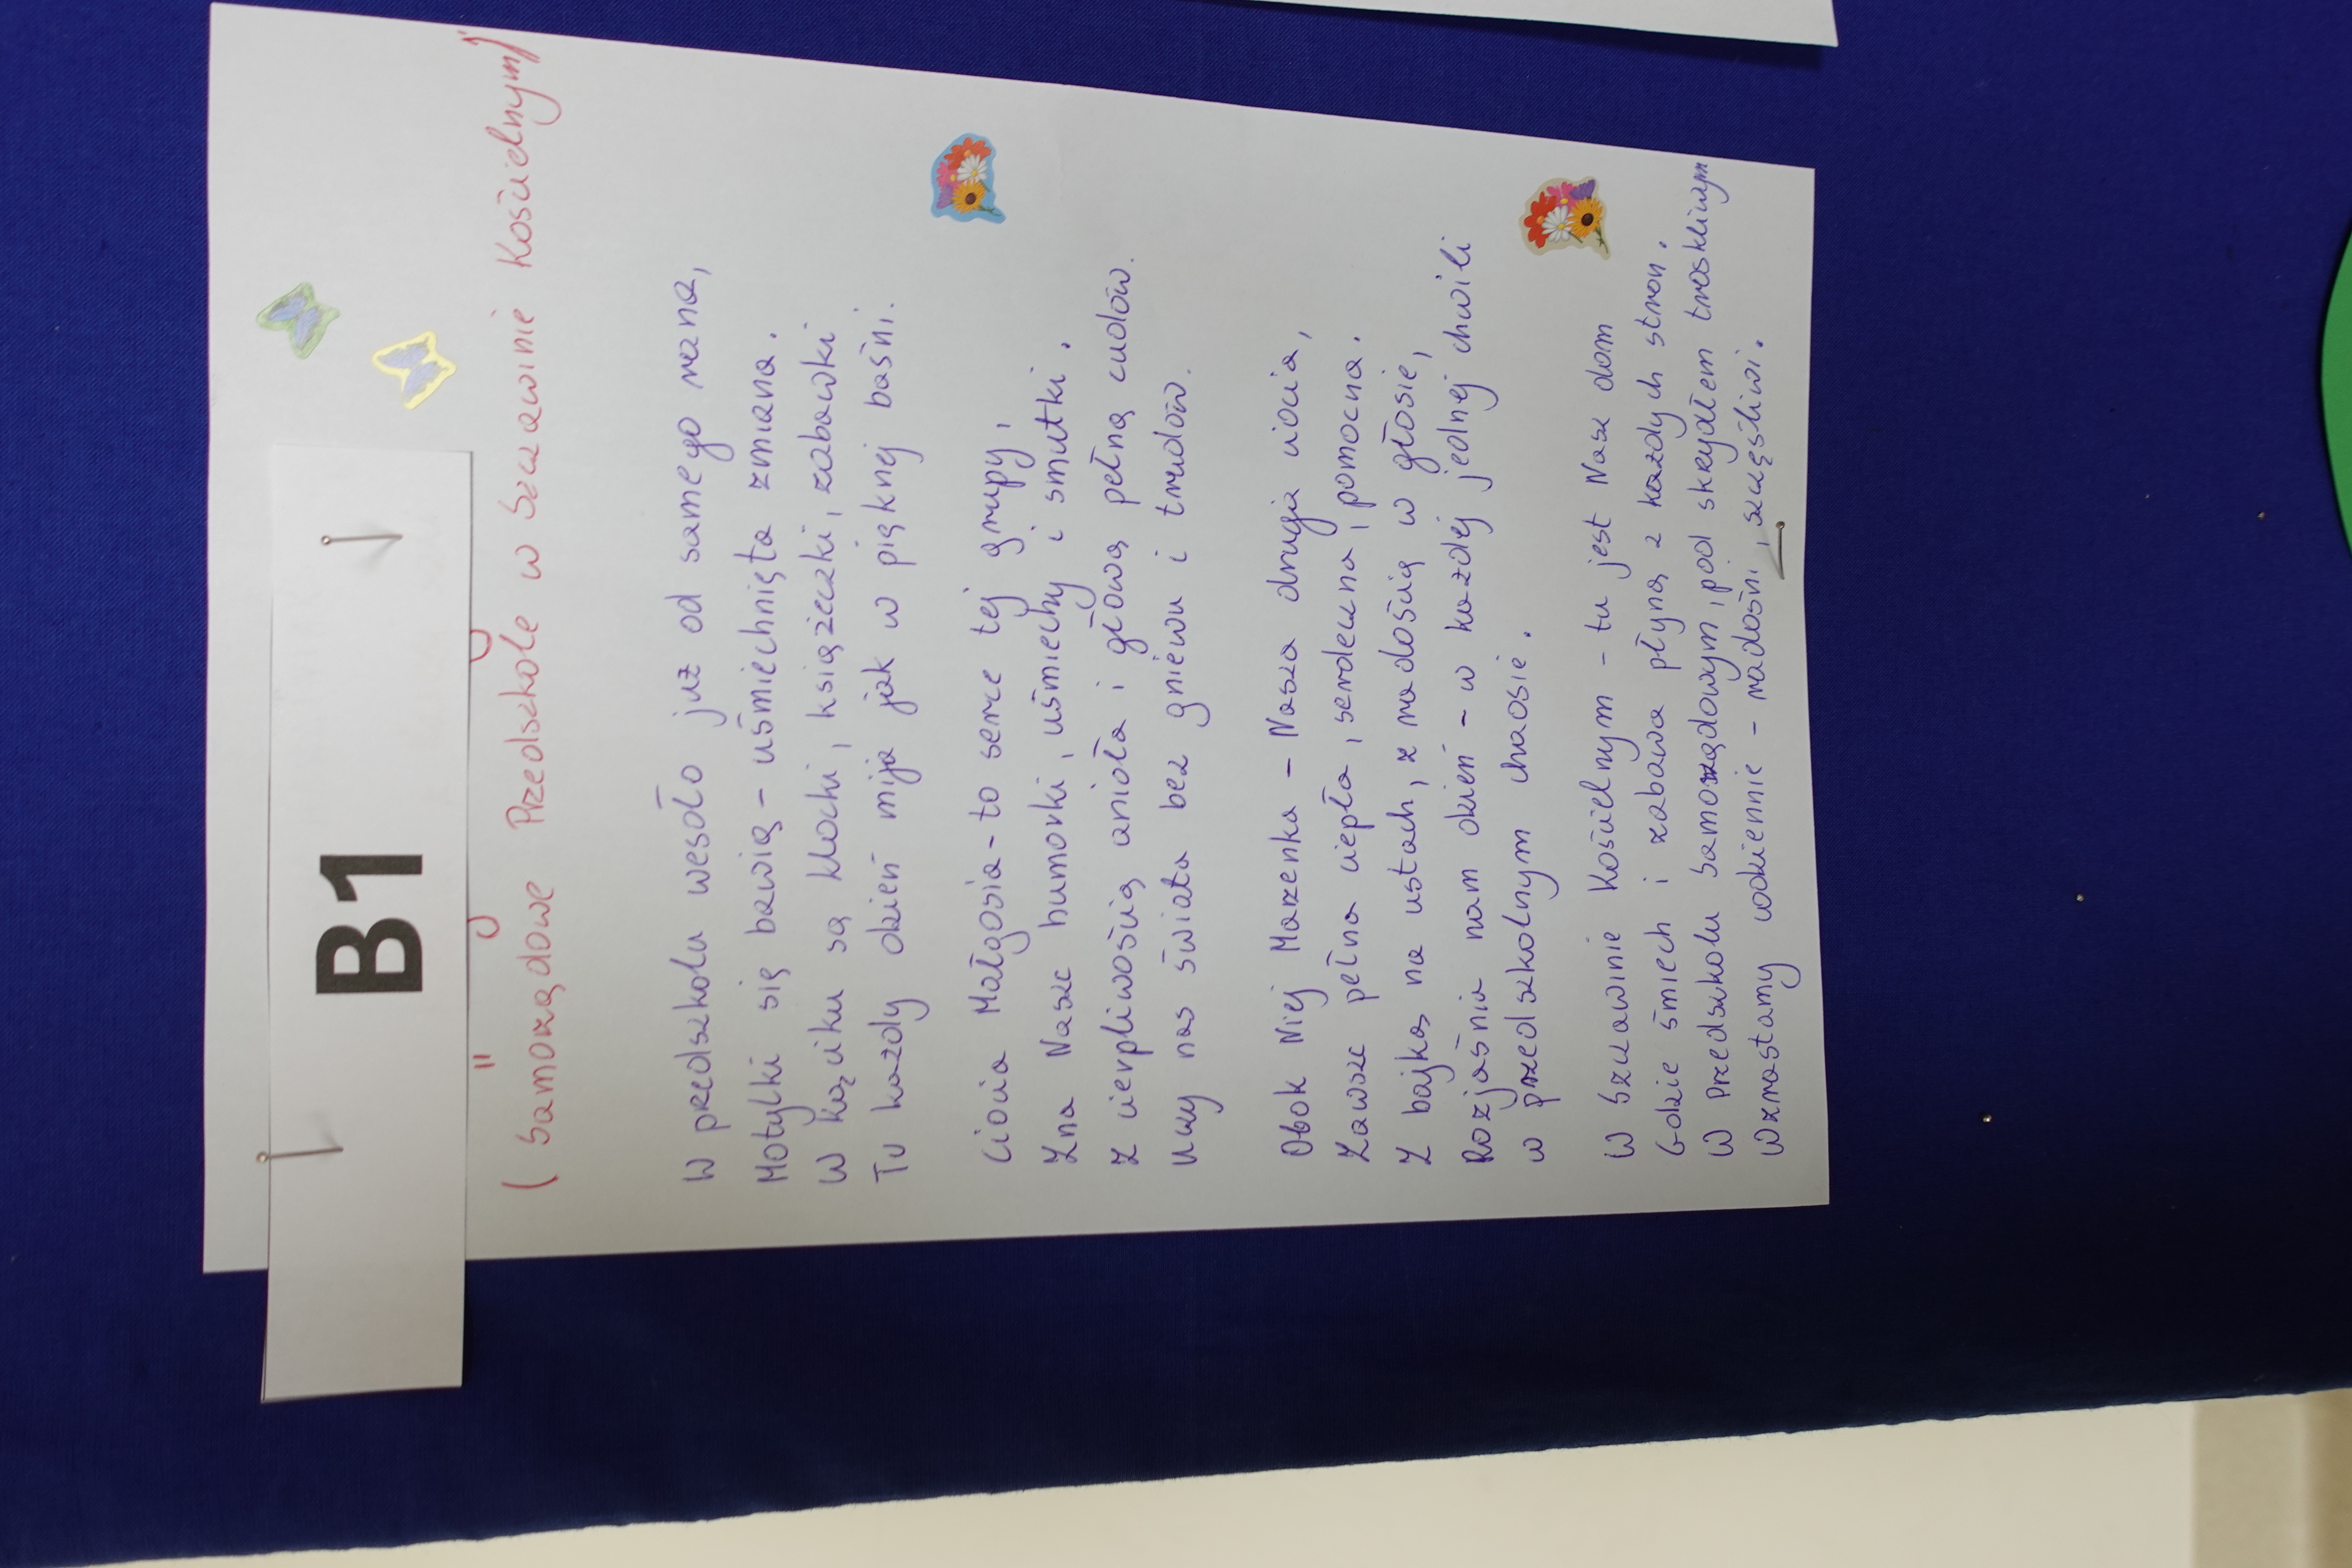 B1
(Samorządowe Przedszkole w Szczawinie Kościelnym)
W przedszkolu wesoło już od samego rana,
Motylki się bawią - uśmiechnięta zmiana.
W kąciku są klocki, książeczki, zabawki
Tu każdy dzień mija jak w pięknej baśni.
Ciocia Małgosia - to serce tej grupy,
Zna Nasze humorki, uśmiechy i smutki.
Z cierpliwością anioła i głową pełną cudów.
Uczy nas świata bez gniewu i trudów.
Obok Niej Marzenka - Nasza druga ciocia,
Zawsze pełna ciepła, serdeczna, pomocna.
Z bajką na ustach, z radością w głosie,
Rozjaśnia nam dzień - w każdej jednej chwili
w przedszkolnym chaosie.
W Szczawinie Kościelnym - tu jest Nasz dom
Gdzie śmiech i zabawa płyną z każdych stron.
W Przedszkolu Samorządowym, pod skrzydłem troskliwym
Wzrastamy codziennie - radośni, szczęśliwi.